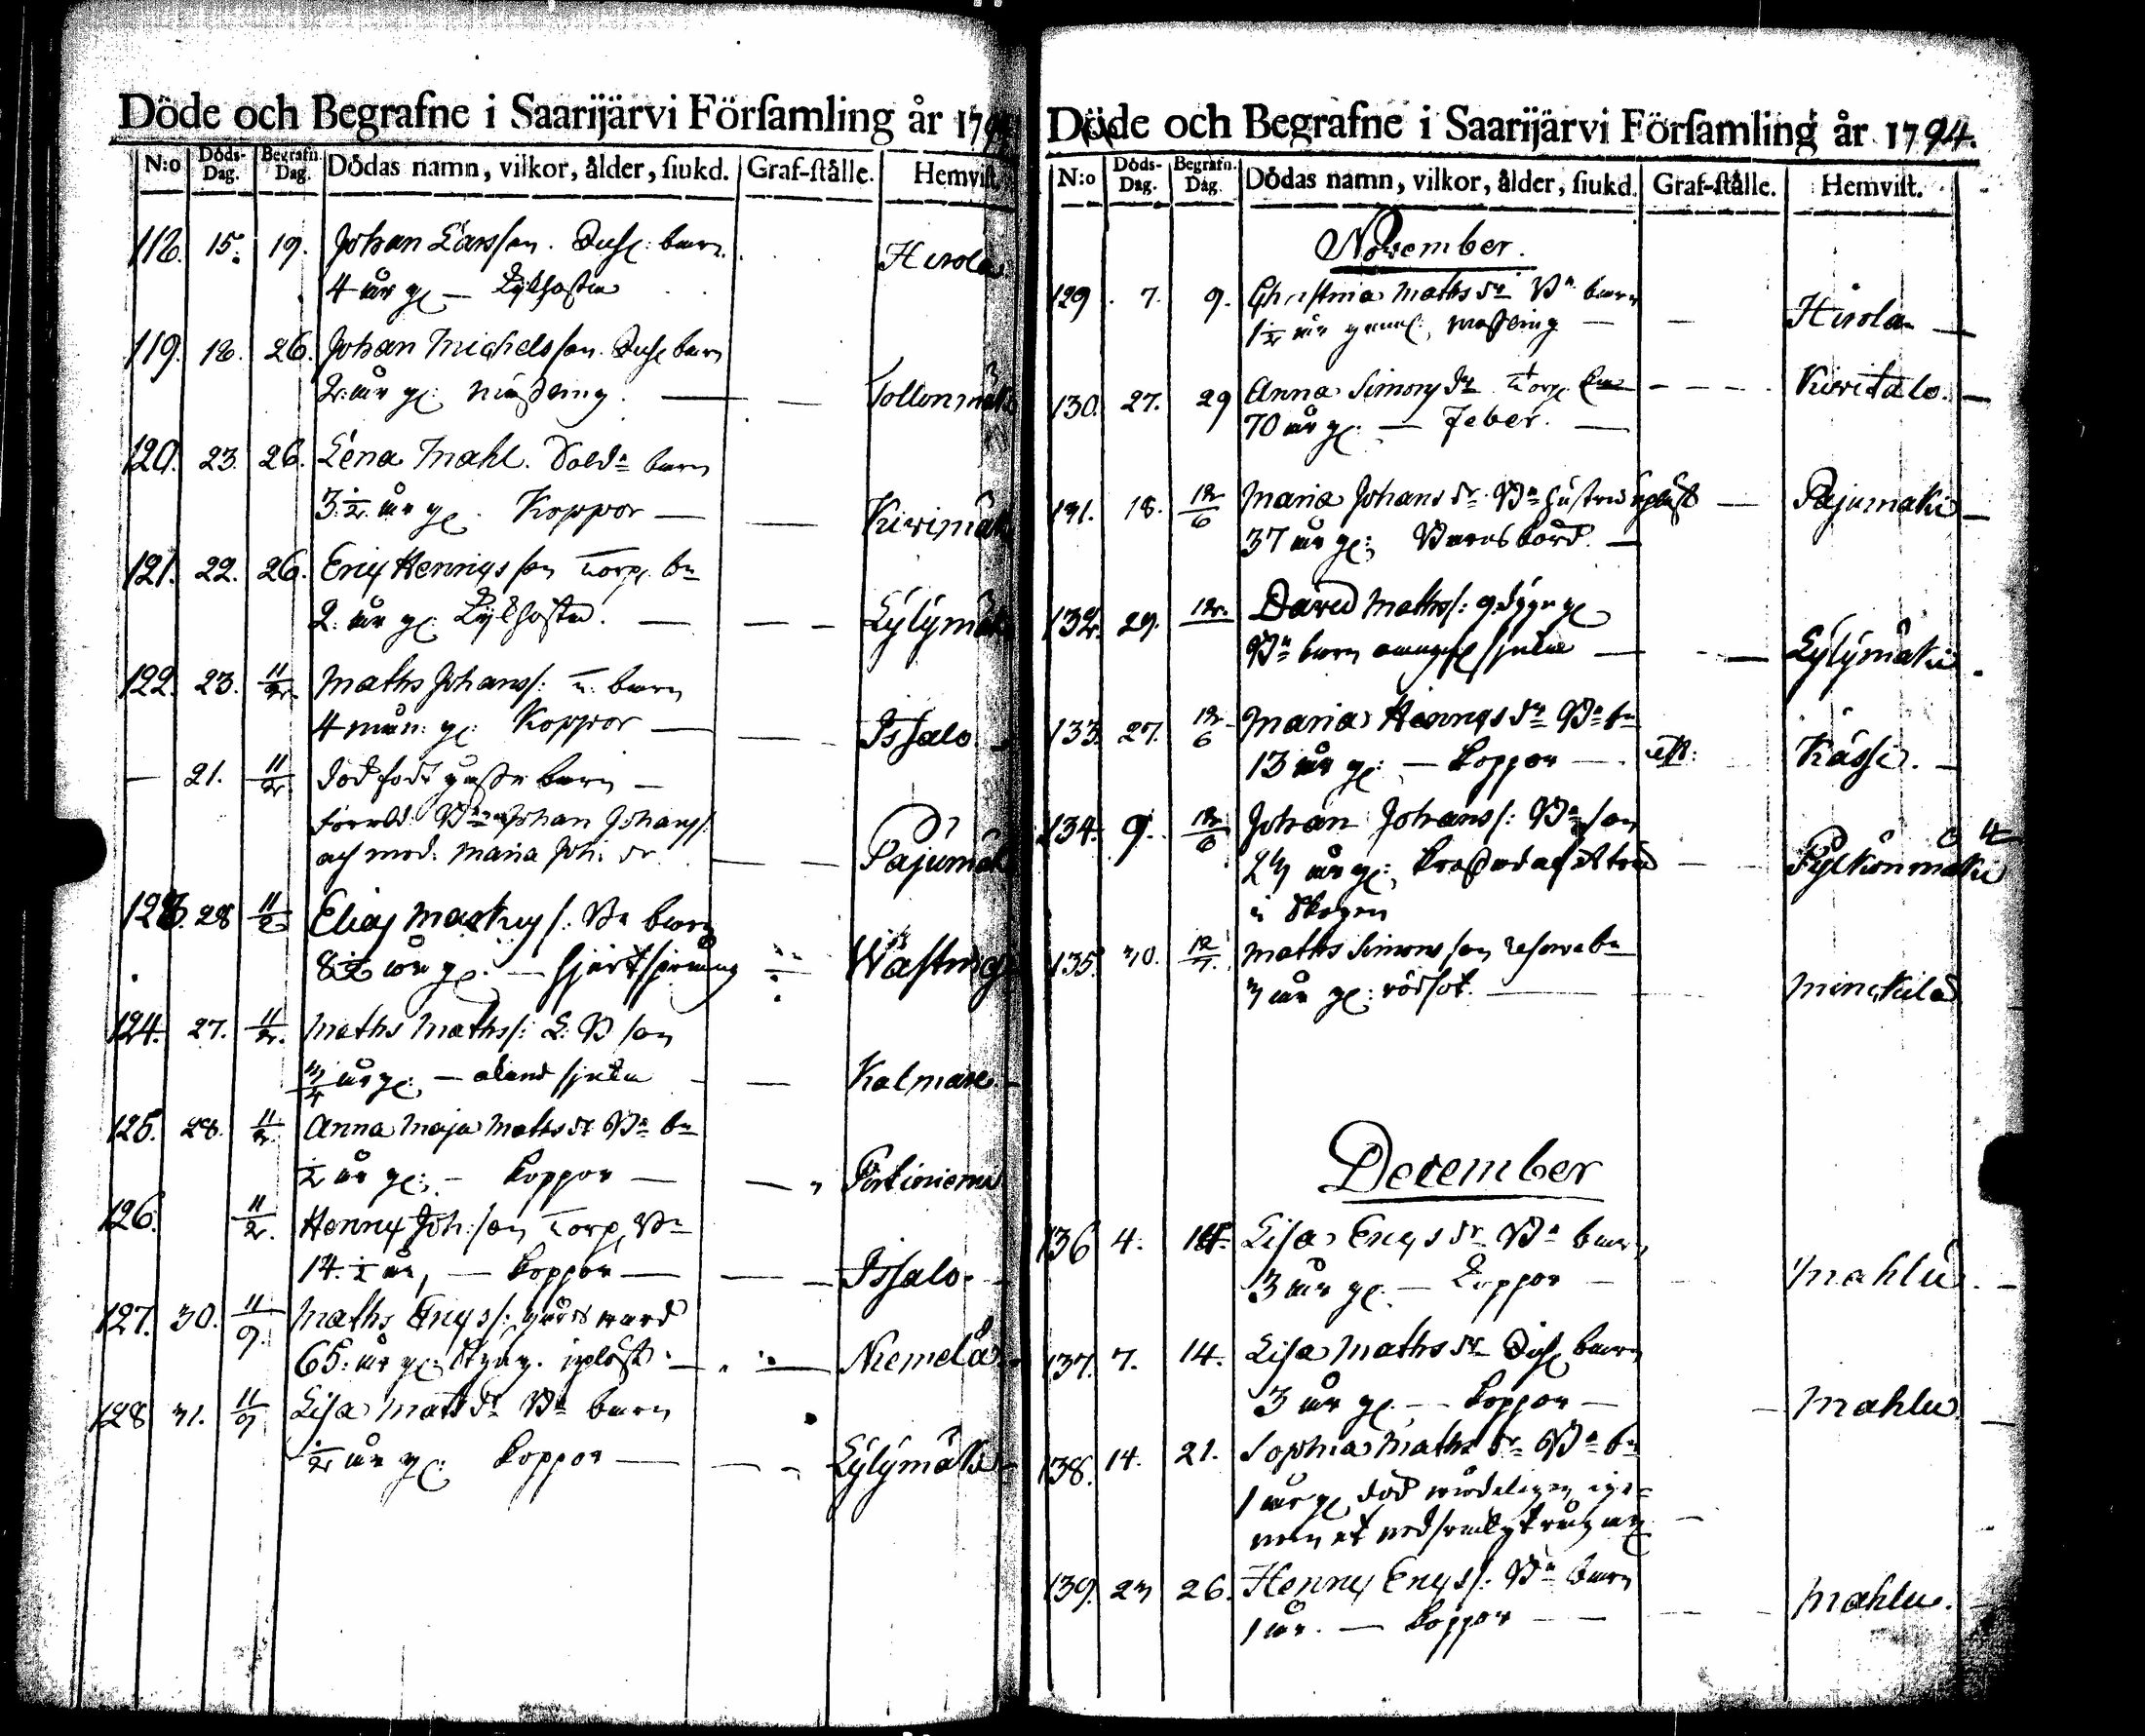 Döde och Begrafne i Saarijärvi Förſamling år 1794
N:o Döds-Dag. Begrafn. Dag. Dödas namn, vilkor, ålder, ſiukd. Graf-ſtälle. Hemviſt.
118. 15. 19. Johan Larsson. Inhs: barn
4 år gl — Kikhosta Hirola
119. 18. 26. Johan Michelsson. Inhs barn
2 år gl: mäsling — Tollonmäk
120. 23. 26. Lena Mahl. Sold:n barn
3 1/2 år gl. Koppor — Kivimäk
121. 22. 26. Eric Henricsson Torp. bn
2: år gl: Kikhosta. — Lylymäk
122. 23. 11/2. Maths Johanss: barn
4 mån: gl: Koppor — Issalo
— 21. 11/2. dödfödt gosse barn —
Föräld: Bn Johan Johanss:
och mod: Maria Joh: dr — Pajumäk
123. 28 11/2 Elias Markuss: Bn barn
8 1/2 år gl. — Hjertsprång Wästing
124. 27. 11/2. Maths Mathss: L: B son
3/4 år gl: — okänd sjukd — Kalmari
125. 28. 11/2. Anna Maja Maths dr Bn bn
1/2 år gl: — koppor — Portiniemi
126. 11/2. Henric Joh:son Torp. bn
14. 1/2 år, — koppor — Issalo.
127. 30. 11/9. Maths Ericss:
65: år gl: Styng. — Niemelä
128 31. 11/9 Lisa Mats dr Bn barn
1/2 år gl: koppor — Lylymäki
Döde och Begrafne i Saarijärvi Förſamling år 1794.
N:o Döds-Dag. Begrafn. Dag. Dödas namn, vilkor, ålder, ſiukd. Graf-ſtälle. Hemviſt.
November.
129. 7. 9. Christina Maths dr Bn barn
1 1/2 år gammal, mässling — Hirola
130. 27. 29 Anna Simons dr Torp. Kivitalo.
70 år gl: — Feber. —
131. 18. 12/6 Maria Johans dr Bn hustru Pajumäki
37 år gl: Barnsbörd. —
132. 29. 12. David Mathss: 9. dygn gl
Bn barn sjukd — Lylymäki
133. 27. 12/6 Maria Henrics dr Bn bn
13 år gl: — koppor — Kässi.
134. 9. 12/6 Johan Johanss: Bn son
23 år gl: krossad af et träd — Pylkönmäki
i skogen
135. 30. 12/7. Maths Simonsson bn
3 år gl: rödsot. — Minckilä
December
136 4. 14. Lisa Erics dr Bn barn
3 år gl. — Koppor — Mahlu
137. 7. 14. Lisa Maths dr Inhs barn
3 år gl. — koppor — Mahlu
138. 14. 21. Sophia Maths dr Bn bn
1 år gl, död ige-
nom et
139. 23 26. Henric Ericss: Bn barn
1 år. — koppor — Mahlu.